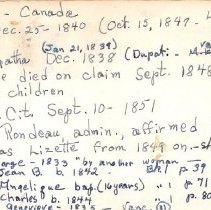 - Canada
Dec. 25 - 1840 (Oct. 15, 1847 -
(Jan 21, 1839)
Agatha Dec. 1838 (Dupati -
He died on claim Sept. 1848
children
Cit. Sept. 10 - 1851
Rondeau, admin., affirmed
as Lizette from 1849 on. - st
George - 1833 "by another woman
Jean B. b. 1842. BK1 p 39
Angelique bap. (16 years) "1 p 71
Charles b. 1844 p. 80
Genevieve - 1835 -